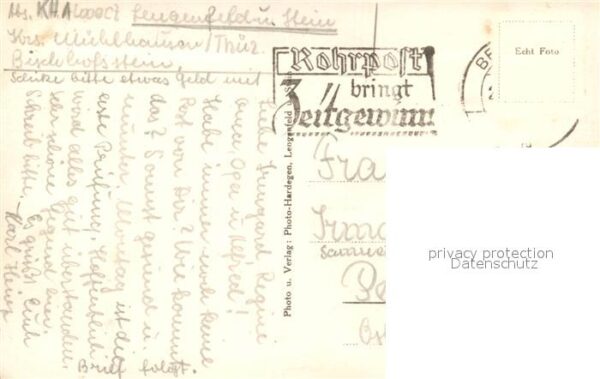 Lengenfeld u. Stein
Krs. Mühlhausen/Thür.
Bischofsstein
Schicke bitte etwas Geld mit
Liebe Irmgard, Regine
Oma Opa u. Alfred!
Habe immer noch keine
Post von Dir? Wie kommt
das? Sonst gesund u.
munter. Montag ist die
erste Prüfung. Hoffentlich
wird alles gut überstanden.
Sehr schöne Gegend hier.
Schreib bitte
Es grüßt Euch
Karl Heinz
Brief folgt.
Photo u. Verlag: Photo-Hardegen, Lengenfeld u. Stein
Rohrpost
bringt
Zeitgewinn
BE
Echt Foto
Fra
Irm
privacy protection
Datenschutz